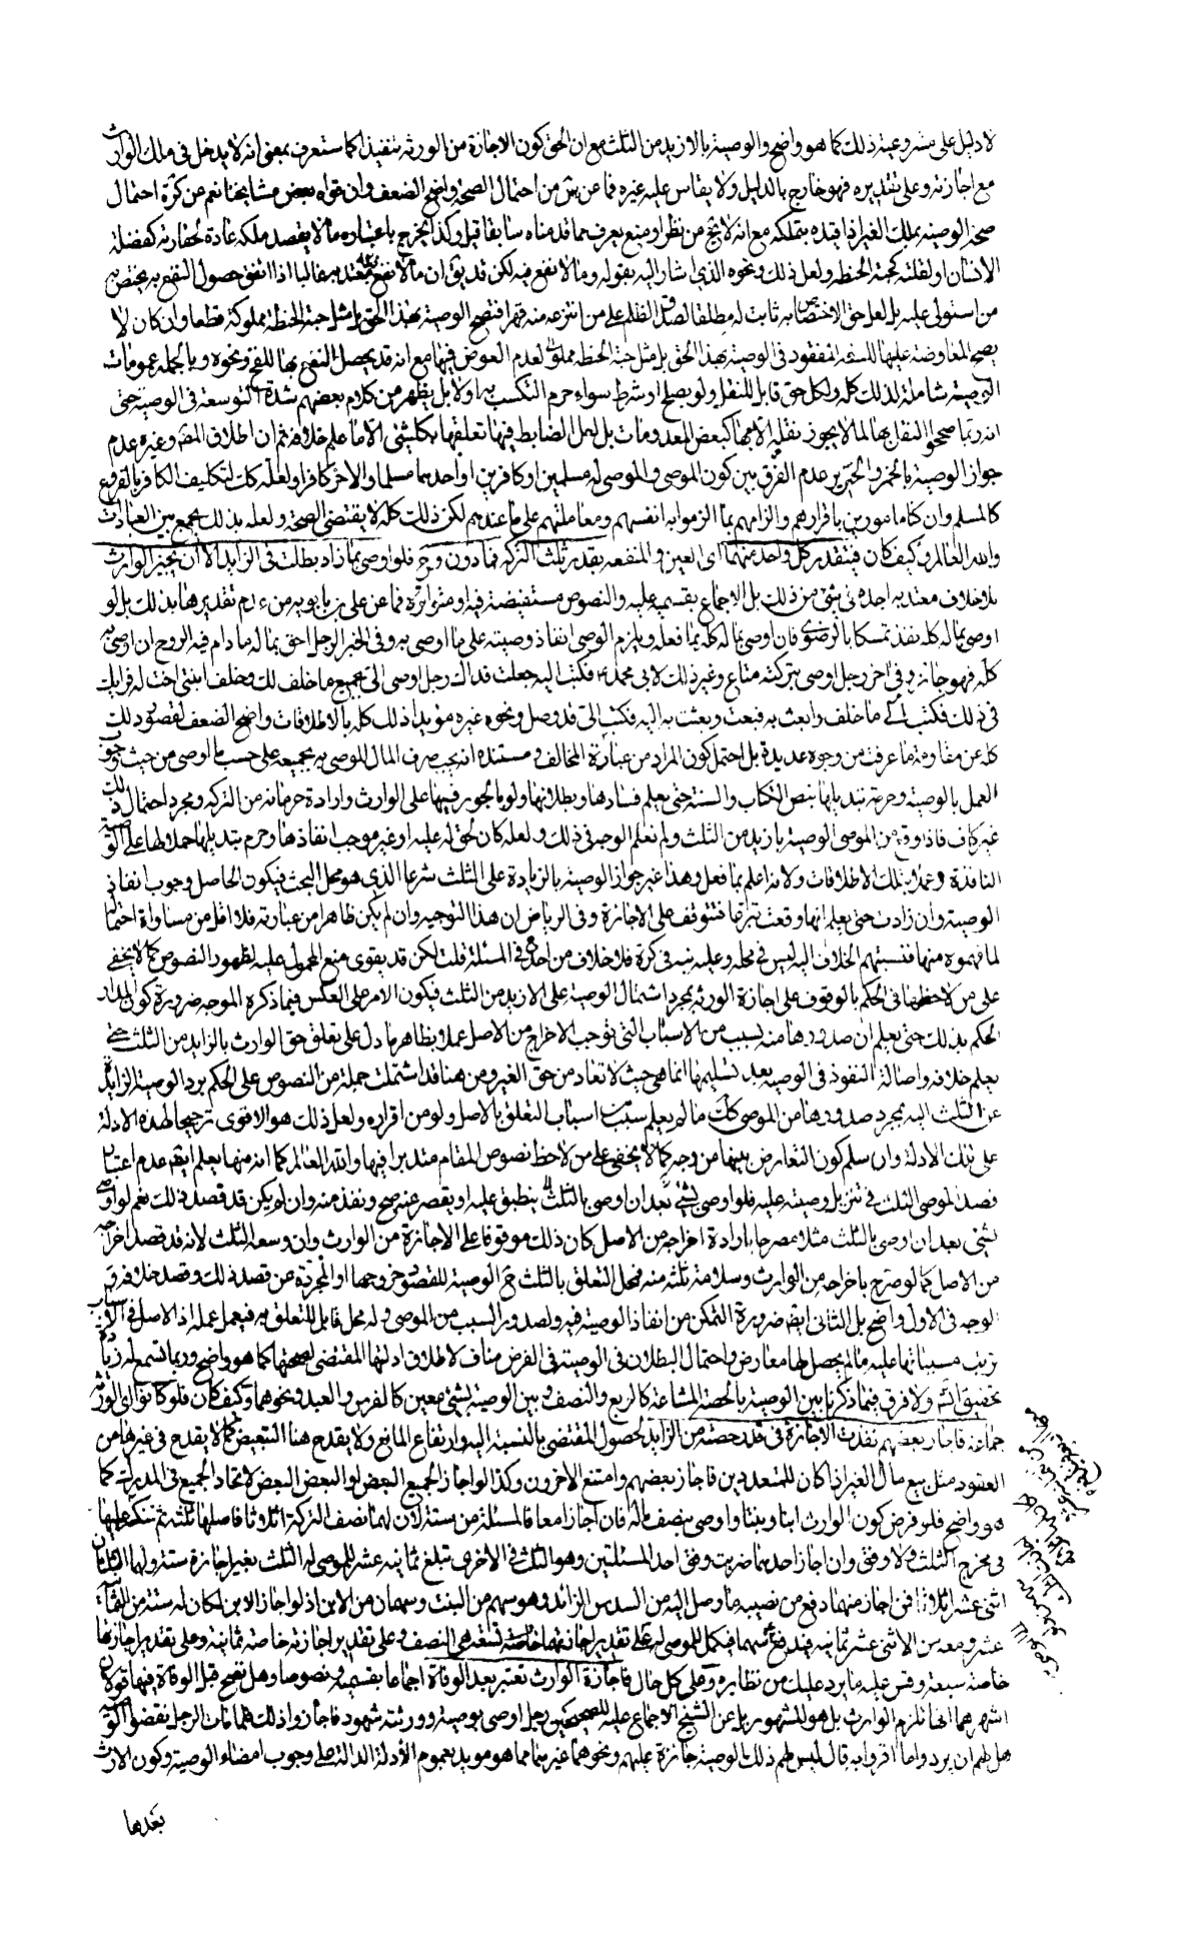 لا دليل على مشروعية ذلك كما هو واضح والوصية بالازيد من الثلث مع ان الحق كون الاجازة من الورثة تنفيذا كما ستعرف بمعنى انه لا يدخل في ملك الوارث
مع اجازته وعلى تقديره فهو خارج بالدليل ولا يقاس عليه غيره فما عن من احتمال الصحة واضح الضعف وان قواه بعض مشايخنا نعم عن كرة احتمال
صحة الوصية بملك الغير اذا قيده بتملكه مع انه لا يخ من نظر او منع يعرف مما قدمناه سابقا قيل وكذا يخرج باعتباره ما لا يقصد ملكه عادة لحقارته كفضلة
الانسان او لقلته كحبة الحنطة ولعل ذلك ونحوه الذي اشار اليه بقوله وما لا نفع فيه لكن قد يق ان ما لا نفع معتد به غالبا اذا اتفق حصول النفع به يختص به
من استولى عليه بل لعل حق الاختصاص به ثابت له مطلقا لصدق الظلم على من انتزعه منه قهرا فتصح الوصية بهذا الحق بل مثل حبة الحنطة مملوكة قطعا وان كان لا
يصح المعاوضة عليها للسفه المفقود في الوصية بهذا الحق بل مثل حبة الحنطة لعدم العوض فيها مع انه قد يحصل النفع بها للفخ ونحوه وبالجملة عمومات
الوصية شاملة لذلك كله ولكل حق قابل للنقل ولو بصلح او شرط سواء حرم التكسب به اولا بل يظهر من كلام بعضهم شدة التوسعة في الوصية حتى
انه ربما صححوا النقل بها لما لا يجوز نقله الا بها كبعض المعدومات بل لعل الضابط فيها تعلقها بكل شيء الا ما علم خلافه ثم ان اطلاق المص وغيره عدم
جواز الوصية بالخمر والخنزير عدم الفرق بين كون الموصي والموصى له مسلمين او كافرين او احدهما مسلما والاخر كافرا ولعله كك لتكليف الكافر بالفروع
كالمسلم وان كنا مامورين باقرارهم والزامهم بما الزموا به انفسهم ومعاملتهم على ما عندهم لكن ذلك كله لا يقتضي الصحة ولعله بذلك يجمع بين العبادات
والله العالم وكيف كان فيتقدر كل واحد منهما اي العين والمنفعة بقدر ثلث التركة فما دون وح فلو اوصى بما زاد بطلت في الزايد الا ان يجيز الوارث
بلا خلاف معتد به اجده في شيء من ذلك بل الاجماع بقسميه عليه والنصوص مستفيضة فيه او متواترة فما عن علي بن بابويه من عدم تقديرها بذلك بل لو
اوصى بماله كله نفذ تمسكا بالرضوي فان اوصى بماله كله بما فعله ويلزم الوصي انفاذ وصيته على ما اوصى به وفي الخبر الرجل احق بماله ما دام فيه الروح ان اوصى به
كله فهو جائز وفي اخر رجل اوصى بتركته متاع وغير ذلك لابي محمد فكتب اليه جعلت فداك رجل اوصى الي بجميع ما خلف لك وخلف ابنتي اخت له فرايك
في ذلك فكتب الي ما خلف وابعث به فبعت وبعثت به اليه فكتب الي قد وصل ونحوه غيره مؤيدا ذلك كله بالاطلاقات واضح الضعف لقصور ذلك
كله عن مقاومة ما عرفت من وجوه عديدة بل احتمل كون المراد من عبارة المخالف ومستنده انه يجب صرف المال الموصى به بجميعه على حسب ما اوصى من حيث وجوب
العمل بالوصية وحرمة تبديلها بنص الكتاب والسنة حتى يعلم فسادها وبطلانها ولو بالجور فيها على الوارث وارادة حرمانه من التركة ومجرد احتمال ذلك
غير كاف فاذا وقع من الموصي الوصية بازيد من الثلث ولم نعلم الوجه في ذلك ولعله كان لحق له عليه او غيره موجب انفاذها وحرم تبديلها حملا لها على الوصية
النافذة وعملا بتلك الاطلاقات ولانه اعلم بما فعل وهذا غير جواز الوصية بالزيادة على الثلث شرعا الذي هو محل البحث فيكون الحاصل وجوب انفاذ
الوصية وان زادت حتى يعلم انها وقعت تبرعا فتتوقف على الاجازة وفي الرياض ان هذا التوجيه وان لم يكن ظاهرا من عبارته فلا اقل من مساواة احتماله
لما فهموه منها فنسبتهم الخلاف اليه ليس في محله وعليه نبه في كرة فلا خلاف من احد في المسئلة قلت لكن قد يقوى منع المحمول عليه لظهور النصوص كما لا يخفى
على من لاحظها في الحكم بالوقوف على اجازة الورثة بمجرد اشتمال الوصية على الازيد من الثلث فيكون الامر على العكس فيما ذكره الموجه ضرورة كون المدار
الحكم بذلك حتى يعلم ان صدورها منه بسبب من الاسباب التي توجب الاخراج من الاصل عملا بظاهر ما دل على تعلق حق الوارث بالزايد من الثلث حتى
يعلم خلافه واصالة النفوذ في الوصية بعد تسليمها انما هي حيث لا تعاد من حق الغير ومن هنا قد اشتملت جملة من النصوص على الحكم برد الوصية الزايدة
عن الثلث اليه بمجرد صدورها من الموصي كك ما لم يعلم سبب اسباب التعلق بالاصل ولو من اقراره ولعل ذلك هو الاقوى ترجيحا لهذه الادلة
على تلك الادلة وان سلم كون التعارض بينها من وجه كما لا يخفى على من لاحظ نصوص المقام متدبرا فيها والله العالم كما انه منها يعلم ايض عدم اعتبار
قصد الموصي الثلث في تنزيل وصيته عليه فلو اوصى بشيء بعد ان اوصى بالثلث ينطبق عليه او يقصر عنه صح ونفذ منه وان لم يكن قد قصد ذلك نعم لو اوصى
بشيء بعد ان اوصى بالثلث مثلا مصرحا بارادة اخراجه من الاصل كان ذلك موقوفا على الاجازة من الوارث وان وسعه الثلث لانه قد قصد اخراجه
من الاصل كما لو صرح باخراجه من الوارث وسلامة ثلثه منه فمحل التعلق بالثلث ح الوصية للقصود خروجها او المجردة عن قصد ذلك وقصد خلافه و
الوجه في الاول واضح بل الثاني ايض ضرورة التمكن من انفاذ الوصية فيه ولصدور السبب من الموصي وله محل قابل للتعلق به فيعمل عمله اذ الاصل في الاسباب
ترتب مسبباتها عليه ما لم يحصل لها معارض واحتمال البطلان في الوصية في الفرض مناف لاطلاق ادلتها المقتضي لصحتها كما هو واضح وربما تسمع له زيادة
تحقيق انش ولا فرق فيما ذكرنا بين الوصية بالحصة المشاعة كالربع والنصف وبين الوصية بشيء معين كالفرس والعبد ونحوهما وكيف كان فلو كانوا اي الورثة
جماعة فاجاز بعضهم نفذت الاجازة في قدر حصته من الزايد لحصول المقتضي بالنسبة اليه وارتفاع المانع ولا يقدح هنا التبعيض كما لا يقدح في غيرها من
العقود مثل بيع مال الغير اذا كان لمتعددين فاجاز بعضهم وامتنع الاخرون وكذا لو اجاز الجميع البعض او البعض البعض لاتحاد الجميع في المدرك كما
هو واضح فلو فرض كون الوارث ابنا وبنتا واوصى بنصف ماله فان اجازا معا فالمسئلة من ستة لان لهما نصف التركة اثلاثا فاصلها ثلثة
في مخرج الثلث ولا وفق وان اجاز احدهما ضربت وفق احد المسئلتين وهو الثلث في الاخرى تبلغ ثمانية عشر للموصى له الثلث بغير اجازة ستة ولهما الثلثان
اثنى عشر اثلاثا فمن اجاز منهما دفع من نصيبه ما وصل اليه من السدس الزائد وهو سهم من البنت وسهمان من الابن اذ لو اجاز الابن لكان له ستة من الثمانية
عشر ومعه من الاثني عشر ثمانية فيدفع منهما فيكمل للموصى له على تقدير اجازتهما خاصة تسعة هي النصف وعلى تقدير اجازته خاصة ثمانية وعلى تقدير اجازتها
خاصة سبعة وقس عليه ما يرد عليك من نظايره وعلى كل حال فاجازة الوارث تعتبر بعد الوفاة اجماعا بقسميه ونصوصا وهل تصح قبل الوفاة فيها قولان
اشهرهما انها تلزم الوارث بل هو المشهور بل عن الشيخ الاجماع عليه للصحيحين رجل اوصى بوصية وورثته شهود فاجازوا ذلك فلما مات الرجل نقضوا الوصية
هل لهم ان يردوا ما اقروا به قال ليس لهم ذلك الوصية جائزة عليهم ونحوهما غيرهما مما هو مؤيد بعموم الادلة الدالة على وجوب امضاء الوصية وكون الارث
بعدها